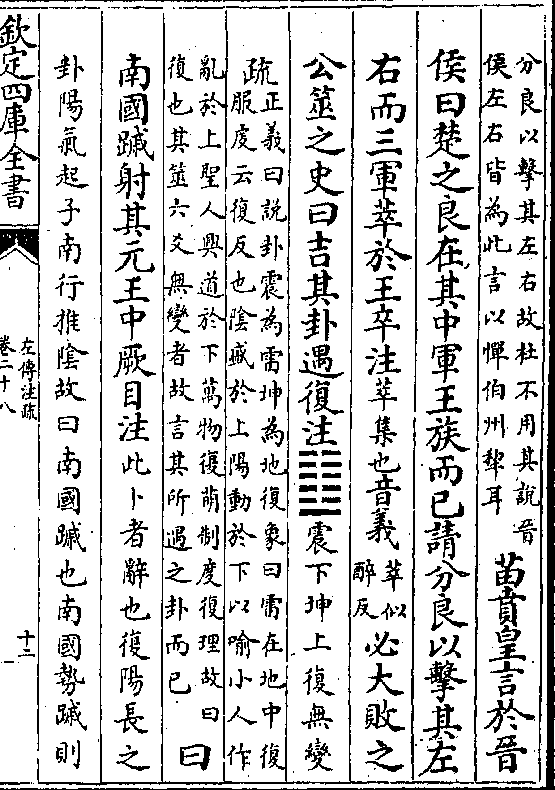 分良以擊其左右故杜不用其說晉
侯左右皆為此言以憚伯州犂耳
苗賁皇言於晉
侯曰楚之良在其中軍王族而已請分良以擊其左
右而三軍萃於王卒注萃集也音義萃似
醉反
必大敗之
公筮之史曰吉其卦遇復注䷗震下坤上復無變
疏正義曰說卦震為雷坤為地復象曰雷在地中復
服虔云復反也陰盛於上陽動於下以喻小人作
亂於上聖人興道於下萬物復萌制度復理故曰
復也其筮六爻無變者故言其所遇之卦而已
曰
南國䠞射其元王中厥目注此卜者辭也復陽長之
卦陽氣起子南行推陰故曰南國䠞也南國勢䠞則
欽定四庫全書
左傳注疏
卷二十八
十二